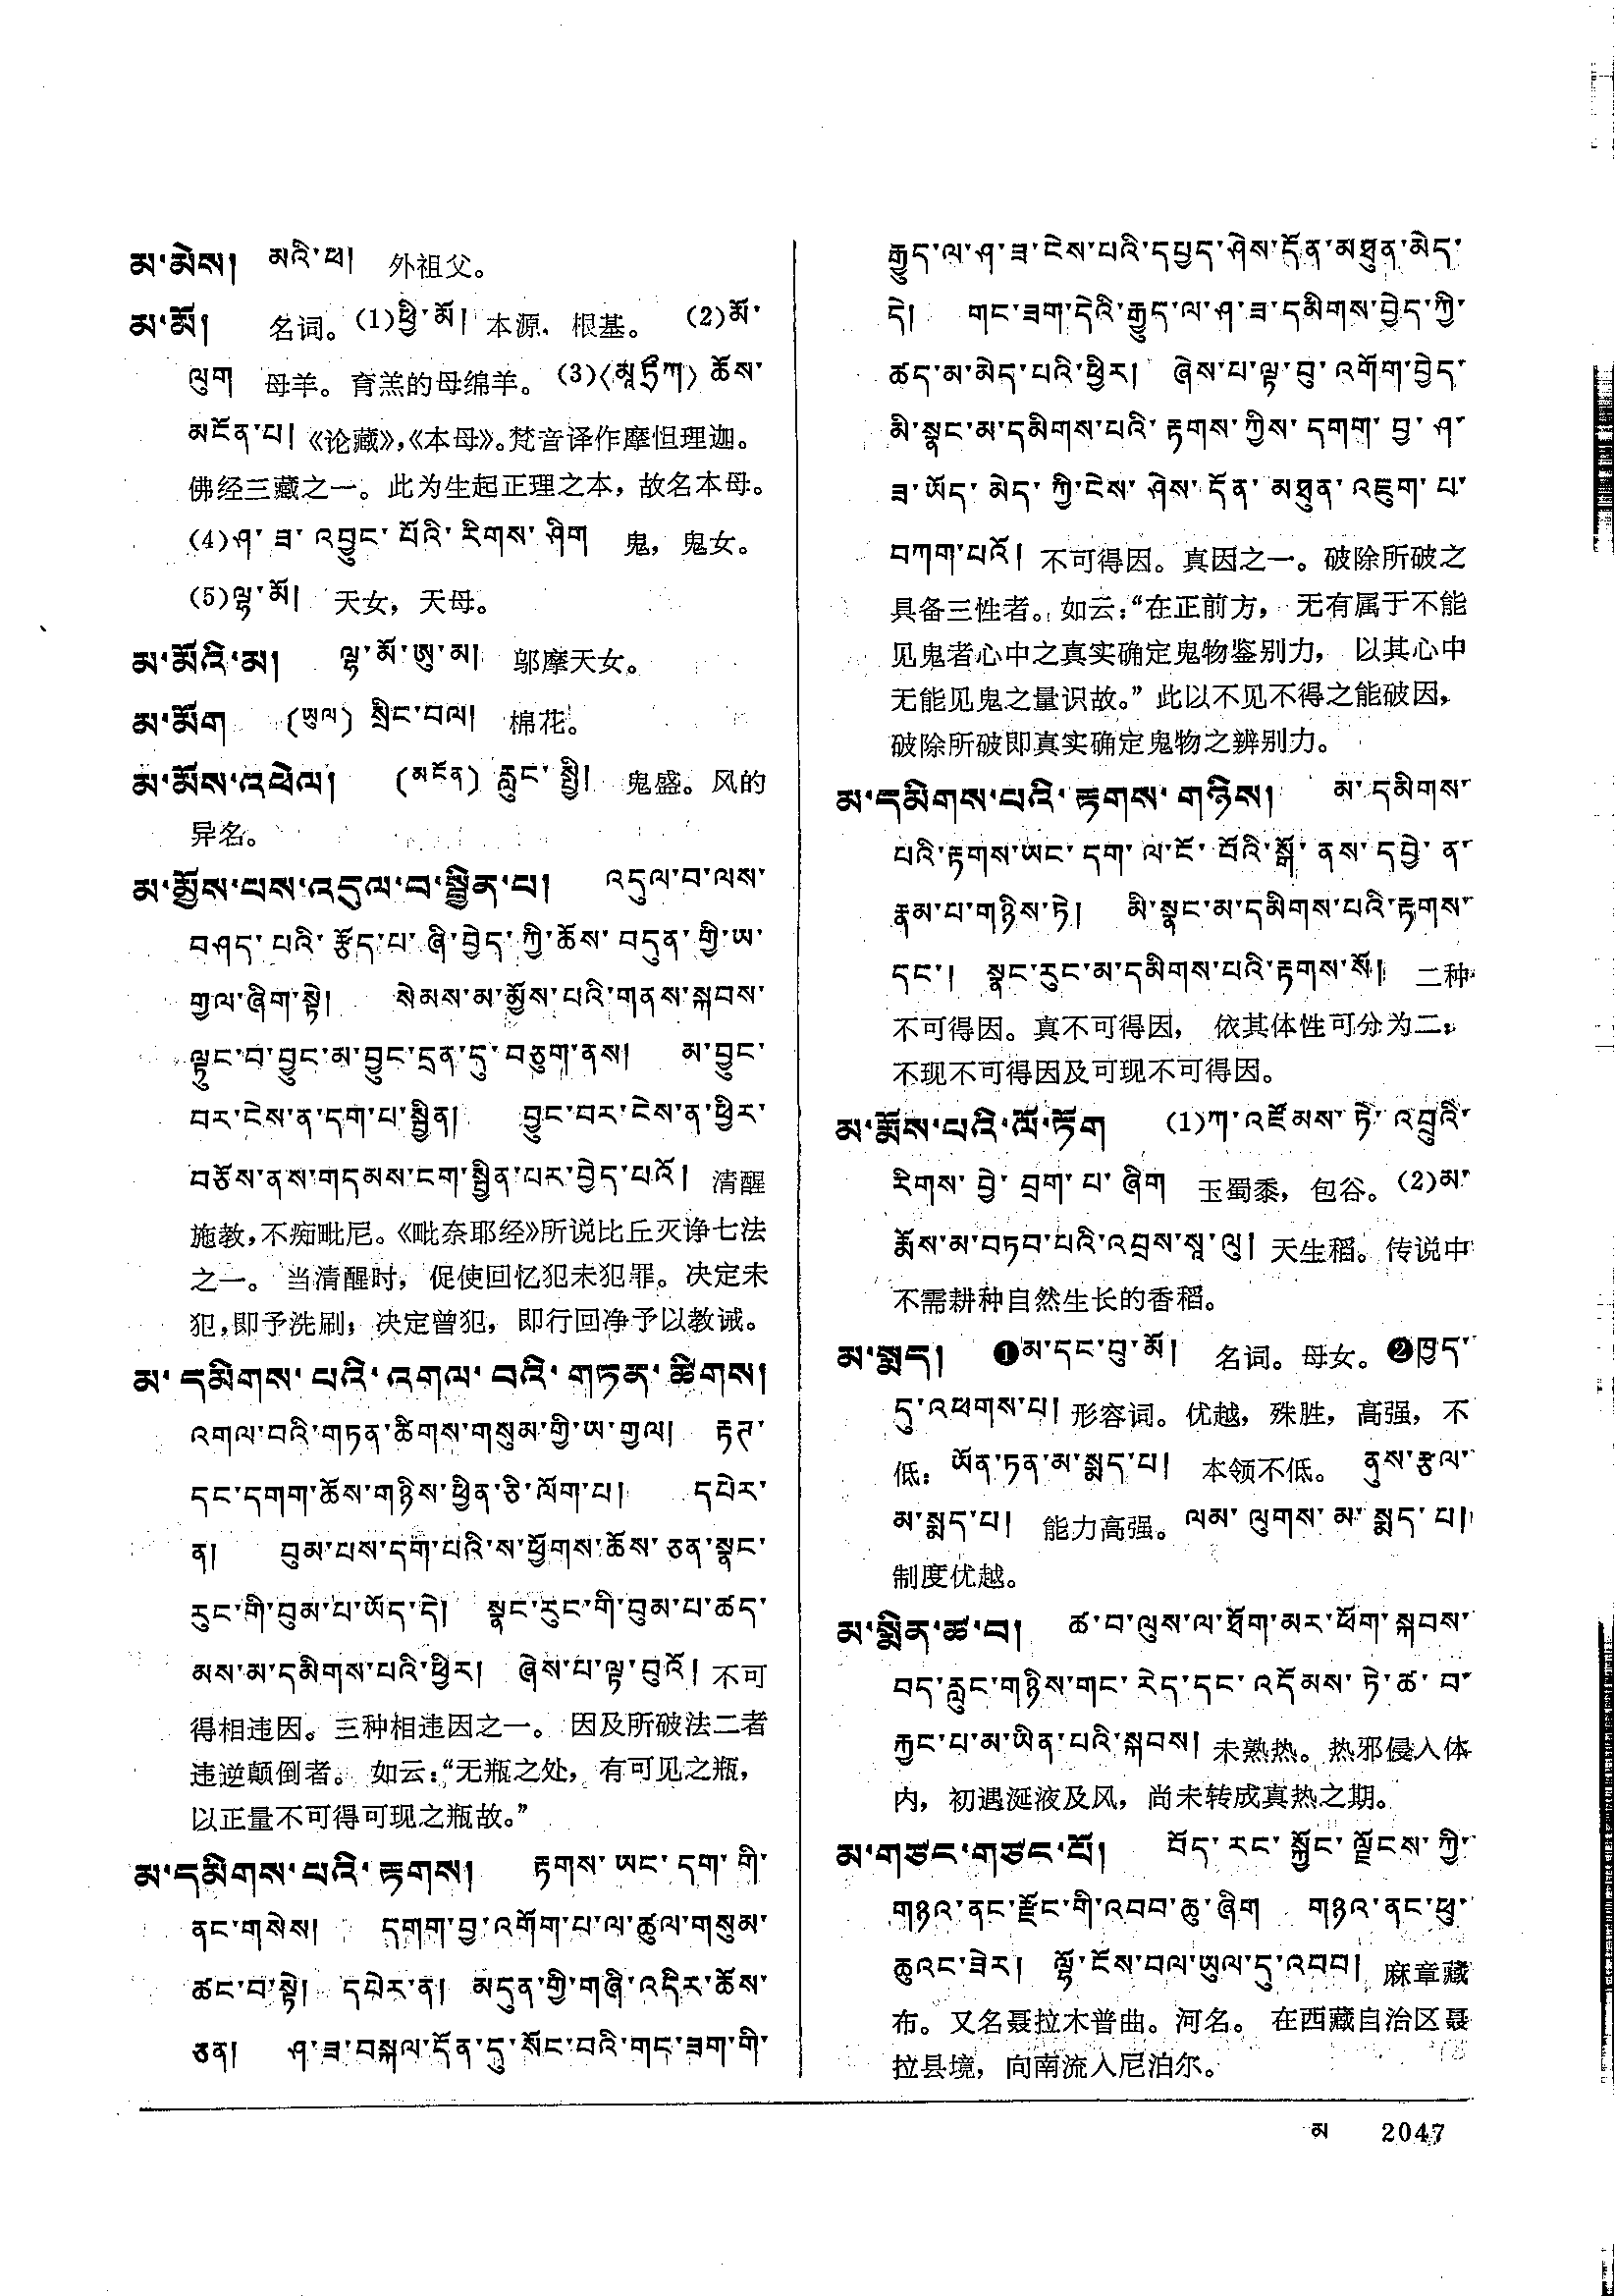 མ་མེས། མའི་ཕ། 外祖父。
མ་མོ། 名词。(1)ཕྱི་མོ། 本源，根基。 (2)མོ་
ལུག 母羊。育羔的母绵羊。(3)〈མཱ་ཏྲྀཀ〉 ཆོས་
མངོན་པ། 《论藏》，《本母》。梵音译作摩怛理迦。
佛经三藏之一。此为生起正理之本，故名本母。
(4)ཤ་ཟ་འབྱུང་པོའི་རིགས་ཤིག 鬼，鬼女。
(5)ལྷ་མོ། 天女，天母。
མ་མོའི་མ། ལྷ་མོ་ཨུ་མ། 邬摩天女。
མ་མོག (ཡུལ) སྲིང་བལ། 棉花。
མ་མོས་འཕེལ། (མངོན) རླུང་སྤྱི། 鬼盛。风的
异名。
མ་མྱོས་པས་འདུལ་བ་སྦྱིན་པ། འདུལ་བ་ལས་
བཤད་པའི་རྩོད་པ་ཞི་བྱེད་ཀྱི་ཆོས་བདུན་གྱི་ཡ་
གྱལ་ཞིག་སྟེ། སེམས་མ་མྱོས་པའི་གནས་སྐབས་
ལྟུང་བ་བྱུང་མ་བྱུང་དྲན་དུ་བཅུག་ནས། མ་བྱུང་
བར་ངེས་ན་དག་པ་སྦྱིན། བྱུང་བར་ངེས་ན་ཕྱིར་
བཅོས་ནས་གདམས་ངག་སྦྱིན་པར་བྱེད་པའོ། 清醒
施教，不痴毗尼。《毗奈耶经》所说比丘灭诤七法
之一。 当清醒时，促使回忆犯未犯罪。决定未
犯，即予洗刷；决定曾犯，即行回净予以教诫。
མ་དམིགས་པའི་འགལ་བའི་གཏན་ཚིགས།
འགལ་བའི་གཏན་ཚིགས་གསུམ་གྱི་ཡ་གྱལ། རྟཊ་
དང་དགག་ཆོས་གཉིས་ཕྱིན་ཅི་ལོག་པ། དཔེར་
ན། བུམ་པས་དག་པའི་ས་ཕྱོགས་ཆོས་ཅན་སྣང་
རུང་གི་བུམ་པ་ཡོད་དེ། སྣང་རུང་གི་བུམ་པ་ཚད་
མས་མ་དམིགས་པའི་ཕྱིར། ཞེས་པ་ལྟ་བུའོ། 不可
得相违因。三种相违因之一。 因及所破法二者
违逆颠倒者。 如云：“无瓶之处，有可见之瓶，
以正量不可得可现之瓶故。”
མ་དམིགས་པའི་རྟགས། རྟགས་ཡང་དག་གི་
ནང་གསེས། དགག་བྱ་འགོག་པ་ལ་ཚུལ་གསུམ་
ཚང་བ་སྟེ། དཔེར་ན། མདུན་གྱི་གཞི་འདིར་ཆོས་
ཅན། ཤ་ཟ་བསྐལ་དོན་དུ་སོང་བའི་གང་ཟག་གི་
རྒྱུད་ལ་ཤ་ཟ་ངེས་པའི་དཔྱད་ཤེས་དོན་མཐུན་མེད་
དེ། གང་ཟག་དེའི་རྒྱུད་ལ་ཤ་ཟ་དམིགས་བྱེད་ཀྱི་
ཚད་མ་མེད་པའི་ཕྱིར། ཞེས་པ་ལྟ་བུ་འགོག་བྱེད་
མི་སྣང་མ་དམིགས་པའི་རྟགས་ཀྱིས་དགག་བྱ་ཤ་
ཟ་ཡོད་མེད་ཀྱི་ངེས་ཤེས་དོན་མཐུན་འཇུག་པ་
བཀག་པའོ། 不可得因。真因之一。破除所破之
具备三性者。如云：“在正前方， 无有属于不能
见鬼者心中之真实确定鬼物鉴别力， 以其心中
无能见鬼之量识故。”此以不见不得之能破因，
破除所破即真实确定鬼物之辨别力。
མ་དམིགས་པའི་རྟགས་གཉིས། མ་དམིགས་
པའི་རྟགས་ཡང་དག་ལ་ངོ་བོའི་སྒོ་ནས་དབྱེ་ན་
རྣམ་པ་གཉིས་ཏེ། མི་སྣང་མ་དམིགས་པའི་རྟགས་
དང་། སྣང་རུང་མ་དམིགས་པའི་རྟགས་སོ། 二种
不可得因。真不可得因， 依其体性可分为二：
不现不可得因及可现不可得因。
མ་རྨོས་པའི་ལོ་ཏོག (1)ཀ་འཛོམས་ཏེ་འབྲུའི་
རིགས་བྱེ་བྲག་པ་ཞིག 玉蜀黍，包谷。(2)མ་
རྨོས་མ་བཏབ་པའི་འབྲས་སཱ་ལུ། 天生稻。传说中
不需耕种自然生长的香稻。
མ་སྨད། ❶མ་དང་བུ་མོ། 名词。母女。❷ཁྱད་
དུ་འཕགས་པ། 形容词。优越，殊胜，高强，不
低： ཡོན་ཏན་མ་སྨད་པ། 本领不低。 ནུས་རྩལ་
མ་སྨད་པ། 能力高强。ལམ་ལུགས་མ་སྨད་པ།
制度优越。
མ་སྨིན་ཚ་བ། ཚ་བ་ལུས་ལ་ཐོག་མར་ཕོག་སྐབས་
བད་རླུང་གཉིས་གང་རེད་དང་འདོམས་ཏེ་ཚ་བ་
རྐྱང་པ་མ་ཡིན་པའི་སྐབས། 未熟热。热邪侵入体
内，初遇涎液及风，尚未转成真热之期。
མ་གཙང་གཙང་པོ། བོད་རང་སྐྱོང་ལྗོངས་ཀྱི་
གཉའ་ནང་རྫོང་གི་འབབ་ཆུ་ཞིག གཉའ་ནང་ཕུ་
ཆུའང་ཟེར། ལྷོ་ངོས་བལ་ཡུལ་དུ་འབབ། 麻章藏
布。又名聂拉木普曲。河名。 在西藏自治区聂
拉县境，向南流入尼泊尔。
མ 2047